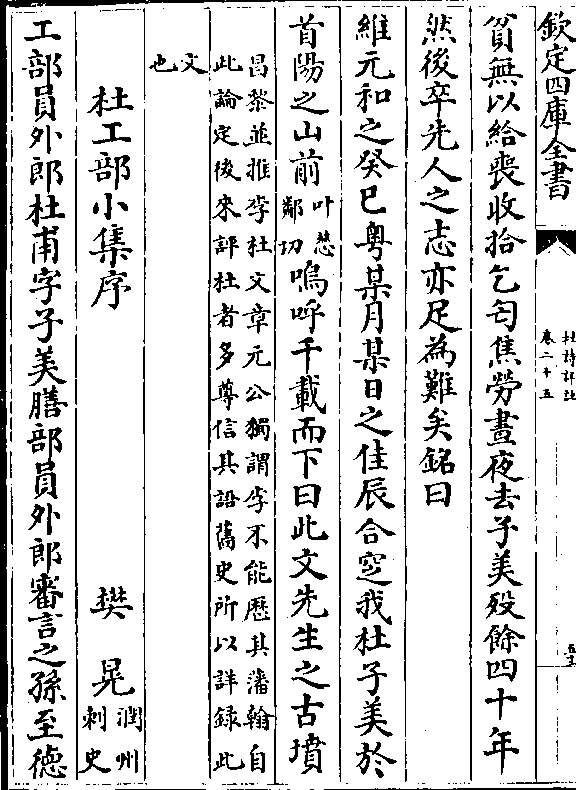 欽定四庫全書
杜詩詳註
卷二十五
貧無以給喪收拾乞匄焦勞晝夜去子美歿餘四十年
然後卒先人之志亦足為難矣銘曰
維元和之癸巳粤某月某日之佳辰合窆我杜子美於
首陽之山前
叶慈
鄰切
嗚呼千載而下曰此文先生之古墳
昌黎並推李杜文章元公獨謂李不能歷其藩翰自
此論定後來評杜者多尊信其語舊史所以詳録此
文
也
杜工部小集序
樊晃
潤州
刺史
工部員外郎杜甫字子美膳部員外郎審言之孫至德